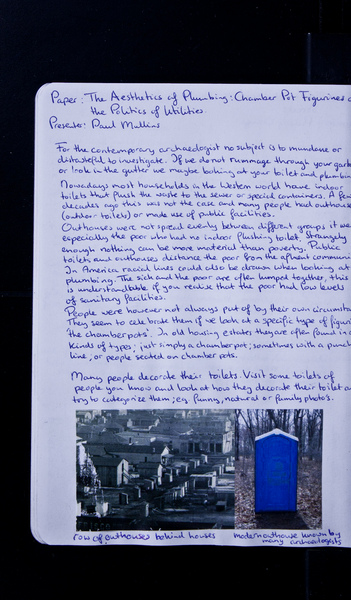 Paper: The Aesthetics of Plumbing: Chamber Pot Figurines a
the Politics of Utilities
Presenter: Paul Mullins
For the contemporary archaeologist no subject is to mundane or
distasteful to investigate. If we do not rummage through your garb
or look in the gutter we maybe looking at your toilet and plumbin
Nowadays most households in the Western world have indoor
toilets that flush the waste to the sewer or special containers. A few
decades ago this was not the case and many people had outhouse
(outdoor toilets) or made use of public facilities.
Outhouses were not spread evenly between different groups it we
especially the poor who had no indoor flushing toilet. Strangely
enough nothing can be more material than poverty. Public
toilets and outhouses distance the poor from the affluent commun
In America racial lines could also be drawn when looking at
plumbing. The sick and the poor are often lumped together, this
is understandable if you realise that the poor had low levels
of sanitary facilities.
People were however not always put of by their own circumsta
They seem to celebrate them if we look at a specific type of figuri
'the chamberpots'. In old housing estates they are often found in a
kinds of types; just simply a chamberpot; sometimes with a punch
line; or people seated on chamber pots.
Many people decorate their toilets. Visit some toilets of
people you know and look at how they decorate their toilet a
try to categorize them; eg funny, natural or family photos.
row of outhouses behind houses
modern outhouse known by
many archaeologists